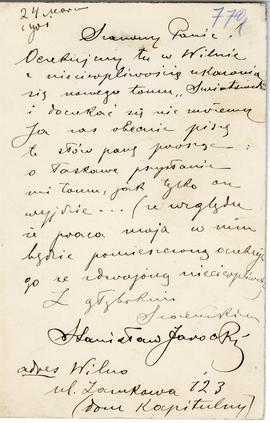 24 Marca
1901
770/1
Szanowny Panie.
Oczekujemy tu w Wilnie
z niecierpliwością ukazania
się nowego tomu „Światowida”
i doczekać się nie możemy
Ja zaś obecnie piszę
te słów parę prosząc
o łaskawe przysłanie
mi tomu, jak tylko on
wyjdzie... (ze względu
iż praca moja w nim
będzie pomieszczona oczekuję
go ze zdwojoną niecierpliwością
Z głębokim
Szacunkiem
Stanisław Jarocki
adres Wilno
ul. Zamkowa 123
(dom Kapitulny)